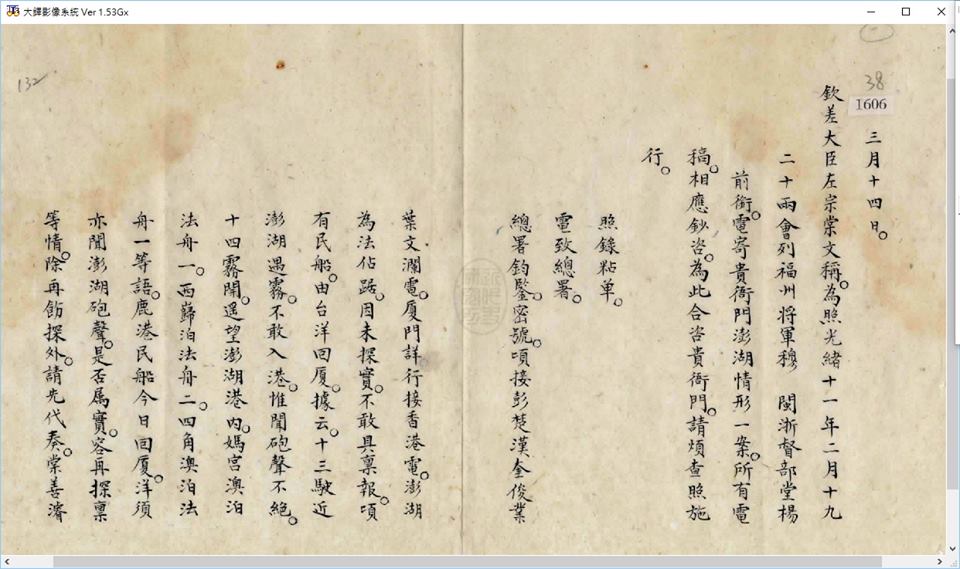 大鐸影像系統 Ver 1.53Gx
38
1606
132
三月十四日。
欽差大臣左宗棠文稱。為照光緒十一年二月十九
二十兩會列福州將軍穆 閩浙督部堂楊
前銜。電寄貴衙門澎湖情形一案。所有電
稿。相應鈔咨。為此合咨貴衙門。請煩查照施
行。
照錄粘單。
電致總署。
總署鈞鑒。密號。項接彭楚漢奎俊業
葉文瀾電。廈門詳行接香港電。澎湖
為法佔踞。因未探實。不敢具稟報。項
有民船。由台洋回廈。據云。十三駛近
澎湖遇霧。不敢入港。惟聞砲聲不絕。
十四霧開。遥望澎湖港內。媽宮澳泊
法舟一。西巋泊法舟二。四角澳泊法
舟一等語。鹿港民船今日回廈。洋須
亦聞澎湖砲聲。是否属實。容再探稟
等情。除再飭探外。請先代奏。棠善濬